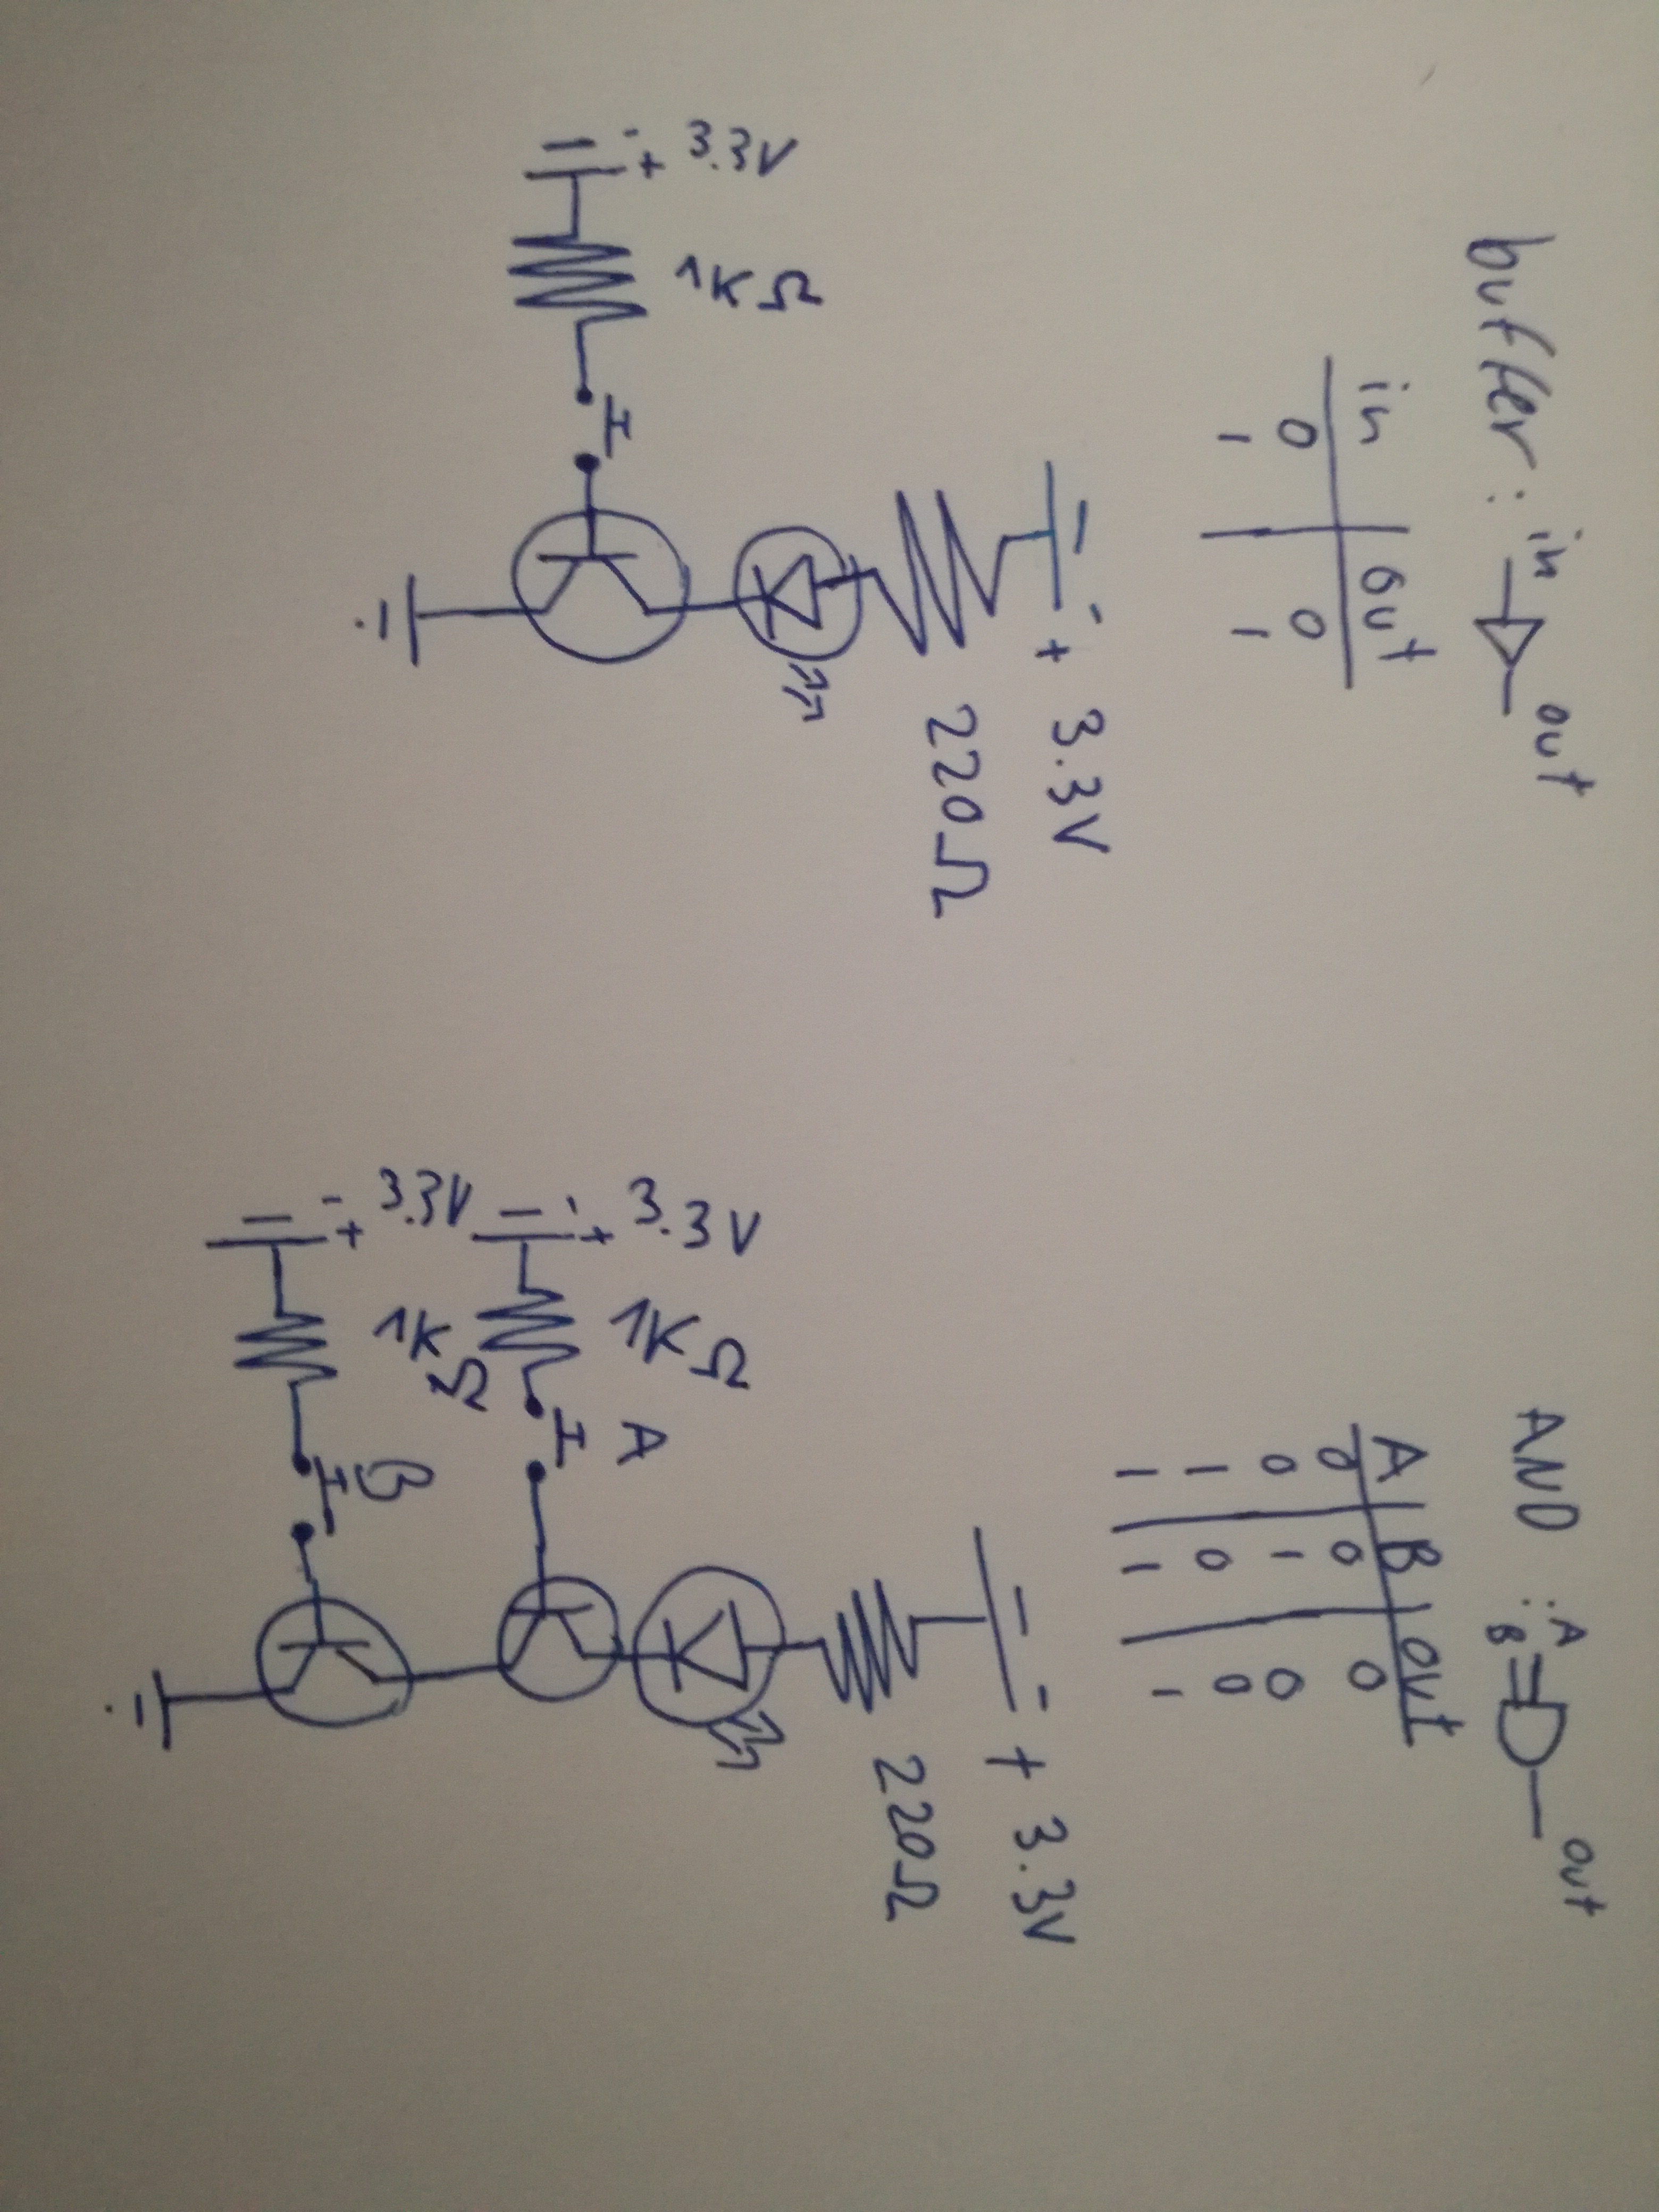 buffer: in out
in out
0 0
1 1
- + 3.3V
220Ω
- + 3.3V
1KΩ
AND : A B out
A B out
0 0 0
0 1 0
1 0 0
1 1 1
- + 3.3V
220Ω
- + 3.3V
1KΩ
A
- + 3.3V
1KΩ
B